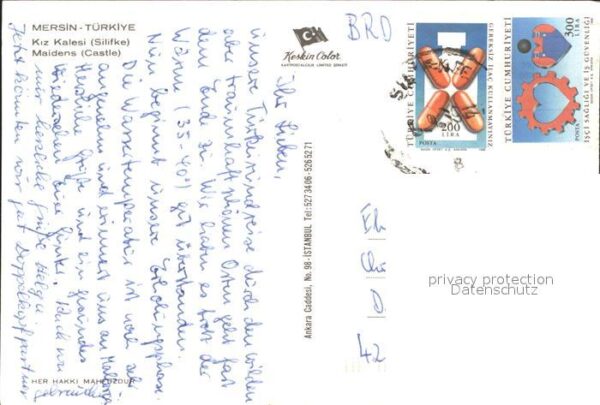 MERSİN - TÜRKİYE
Kız Kalesi (Silifke)
Maidens (Castle)
Keskin Color
KARTPOSTALCILIK LIMITED ŞİRKETİ
BRD
TÜRKİYE CUMHURİYETİ
GEREKSİZ İLAÇ KULLANMAYINIZ
200
LİRA
POSTA
TÜRKİYE CUMHURİYETİ
300
LİRA
POSTA
İŞÇİ SAĞLIĞI VE İŞ GÜVENLİĞİ
Ihr Lieben,
unsere Türkeirundreise durch den wilden
aber traumhaft schönen Osten geht fast
dem End zu. Wir haben es trotz der
Wärme (35-40°) gut überstanden.
Nun beginnt unsere Erholungsphase.
Die Wassertemperatur ist noch sehr
angenehm und erinnert uns an
Herzliche Grüße und ein gesundes
Wiedersehen Eure
herzliche Grüße Helga
Jetzt könnten wir gut Doppelkopfpartner
gebrauchen
Ankara Caddesi, No. 98-İSTANBUL Tel: 5273406-5265271
42
privacy protection
Datenschutz
HER HAKKI MAHFUZDUR